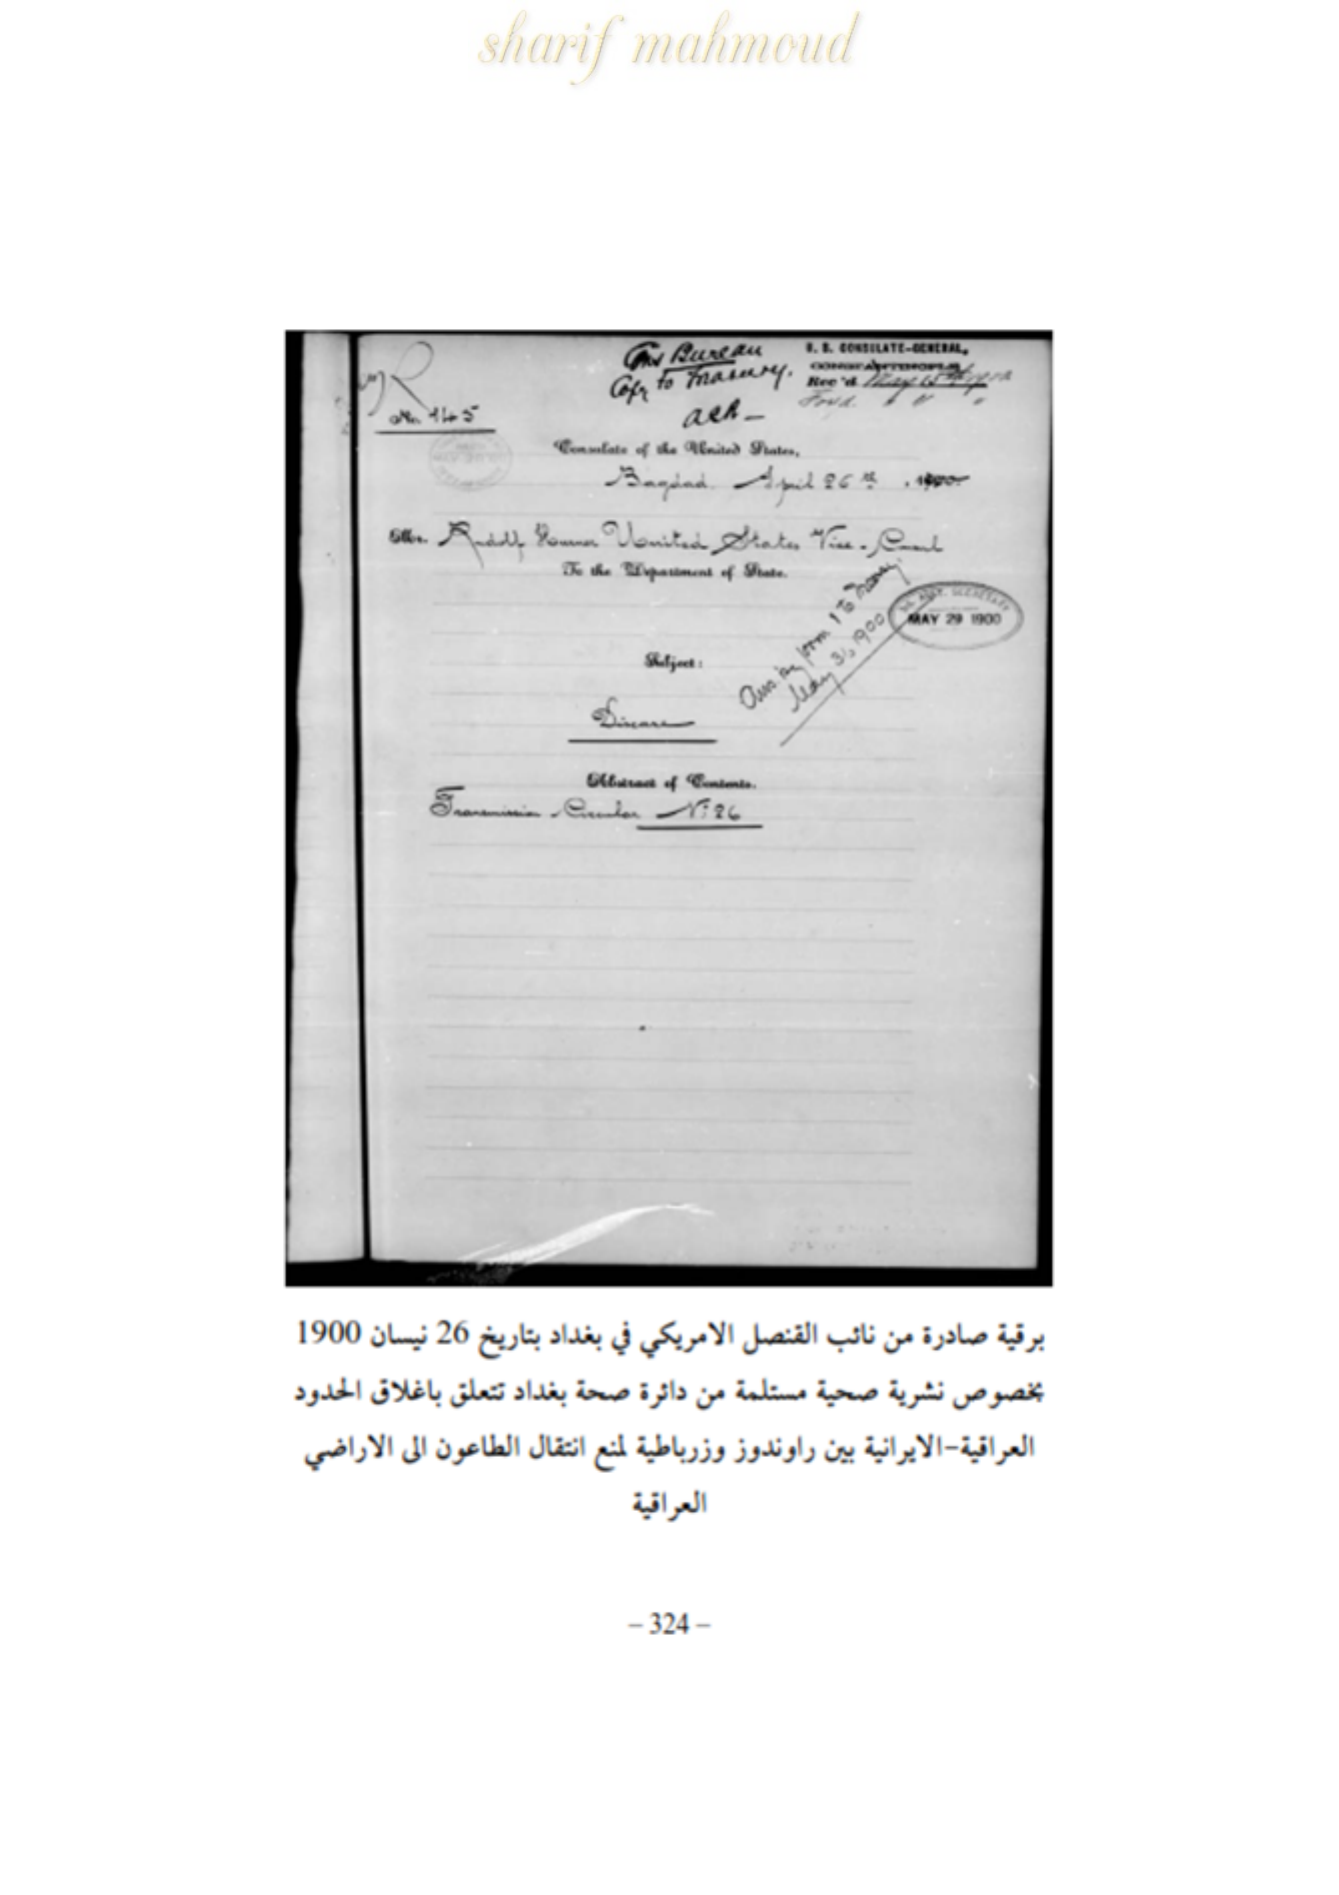 sharif mahmoud
Cons Bureau
Copy to Treasury.
U. S. CONSULATE-GENERAL,
CONSTANTINOPLE
Rec'd May 15th 1900
Forw'd " " "
No. 145
Consulate of the United States,
Bagdad. April 26th, 1900
Mr. Rudolf Hurner United States Vice-Consul
To the Department of State.
MAY 29 1900
May 31, 1900
Subject:
Disease
Abstract of Contents.
Transmission Circular No 26
برقية صادرة من نائب القنصل الامريكي في بغداد بتاريخ 26 نيسان 1900
بخصوص نشرية صحية مستلمة من دائرة صحة بغداد تتعلق باغلاق الحدود
العراقية-الايرانية بين راوندوز وزرباطية لمنع انتقال الطاعون الى الاراضي
العراقية
– 324 –